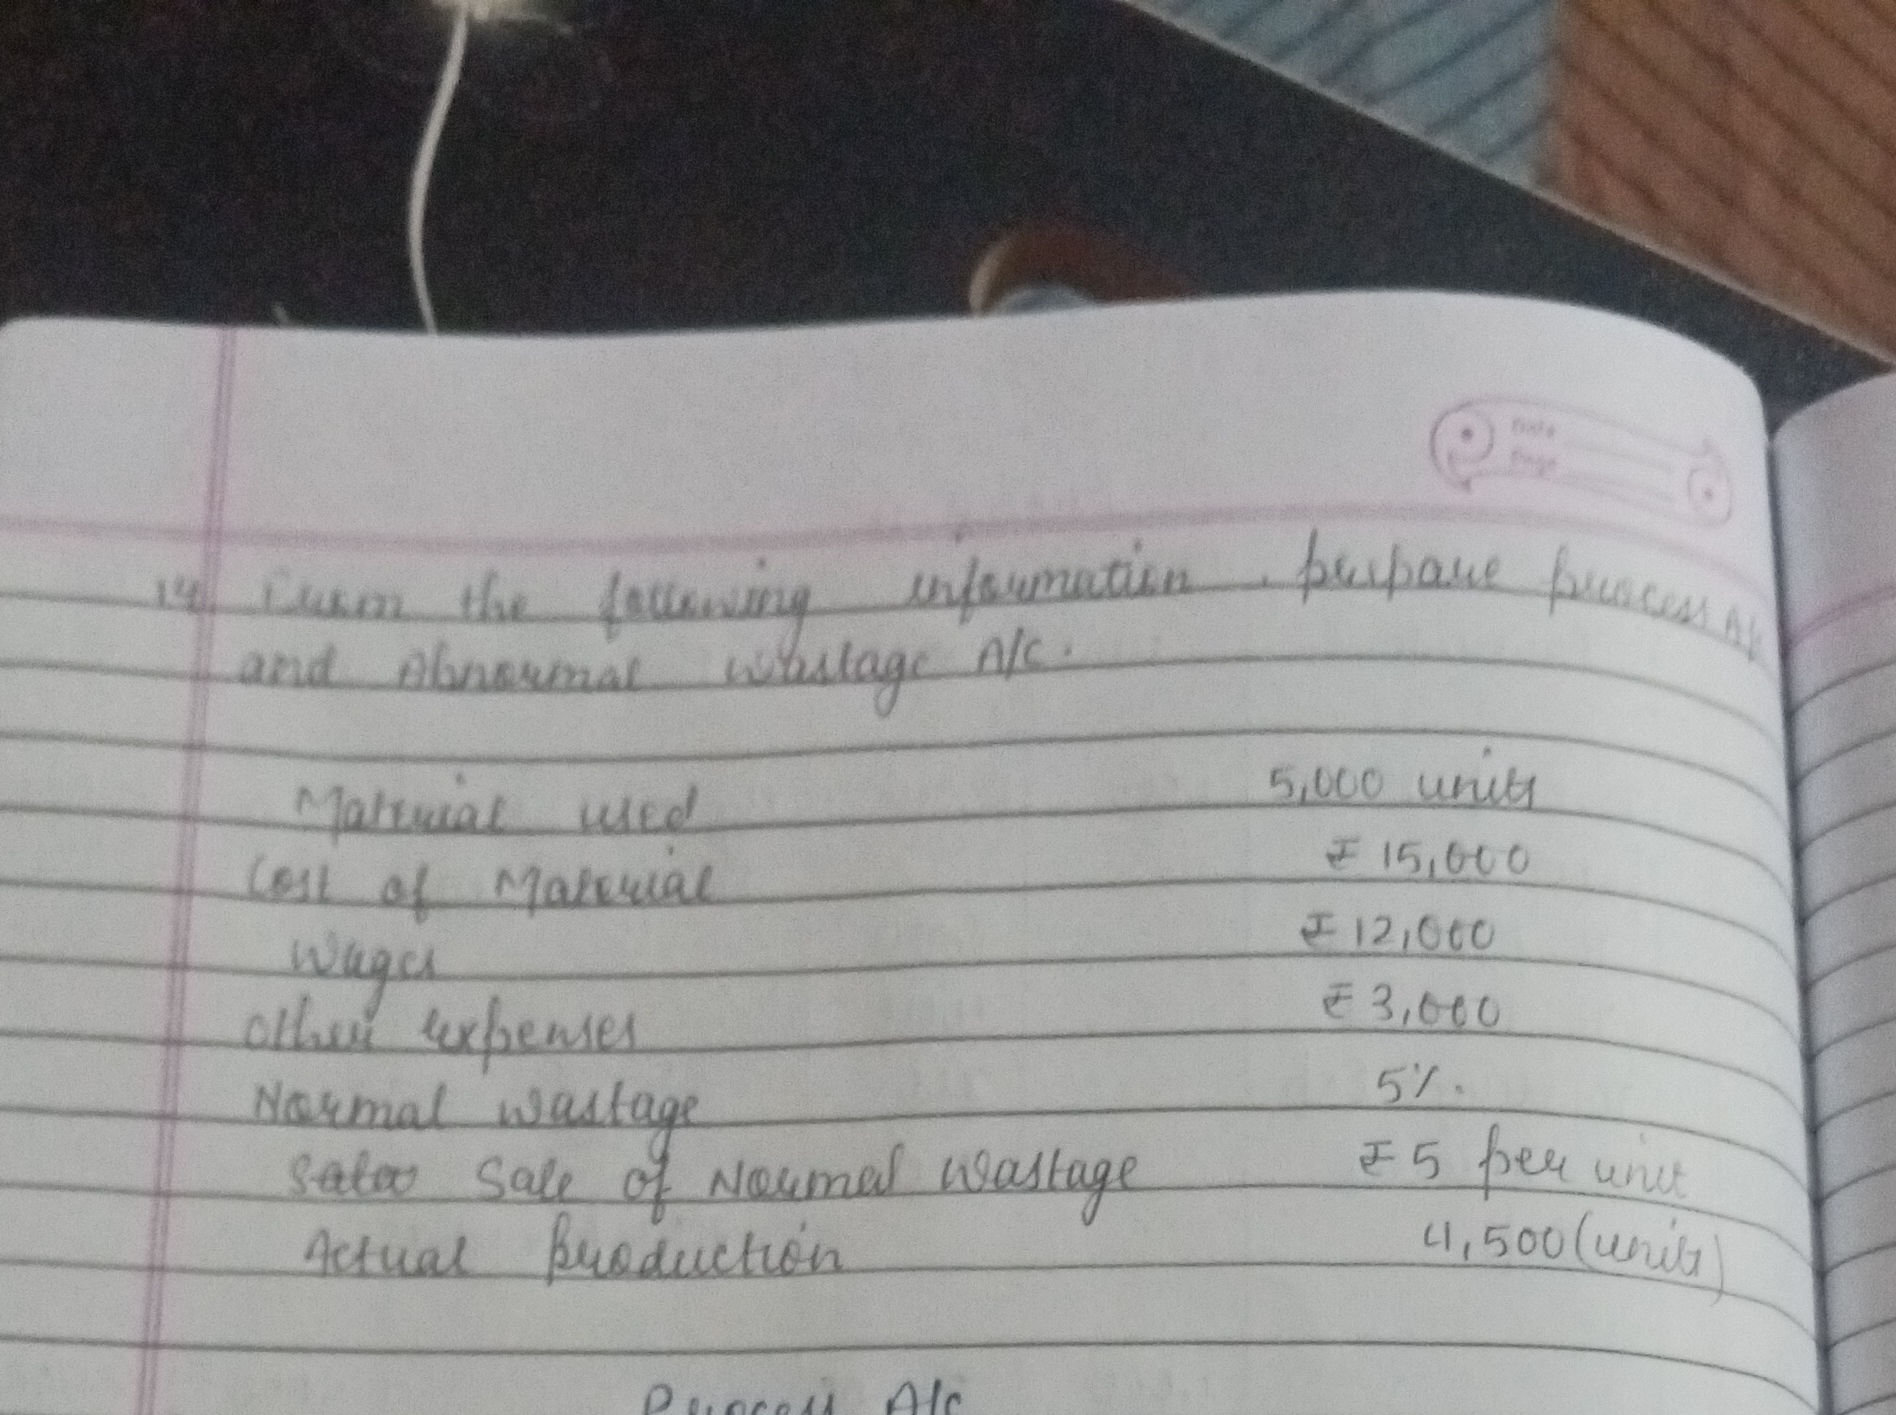 Date
Page
14 From the following information, perpare process A/c
and Abnormal wastage A/c.
Material used 5,000 units
Cost of Material ₹ 15,000
Wages ₹ 12,000
Other expenses ₹ 3,000
Normal wastage 5%.
Sale of Normal Wastage ₹ 5 per unit
Actual Production 4,500 (units)
Process A/c